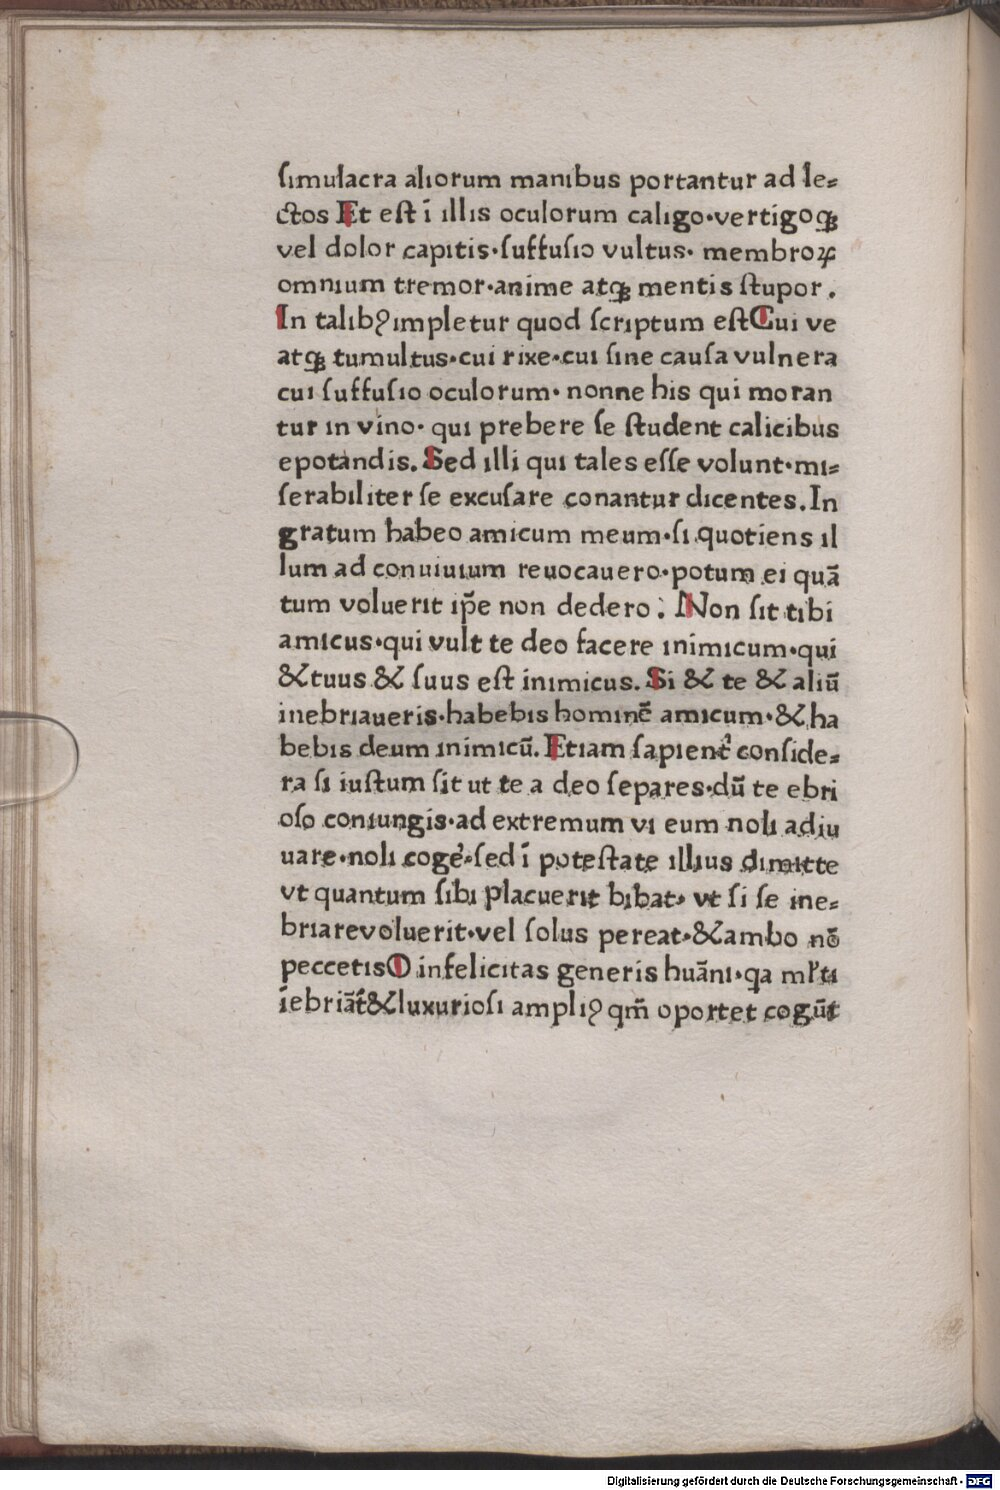 ſimulacra aliorum manibus portantur ad le⸗
ctos Et eſt ī illis oculorum caligo·vertigoqꝫ
vel dolor capitis·ſuffuſio vultus· membroꝝ
omnium tremor·anime atqꝫ mentis ſtupor.
In talibꝰ impletur quod ſcriptum eſt Cui ve
atqꝫ tumultus·cui rixe·cui ſine cauſa vulnera
cui ſuffuſio oculorum· nonne his qui moran
tur in vino· qui prebere ſe ſtudent calicibus
epotandis. Sed illi qui tales eſſe volunt·mi⸗
ſerabiliter ſe excuſare conantur dicentes. In
gratum habeo amicum meum·ſi quotiens il
lum ad conuiuium reuocauero·potum ei quā
tum voluerit ip̄e non dedero: Non ſit tibi
amicus·qui vult te deo facere inimicum·qui
& tuus & ſuus eſt inimicus. Si & te & aliū
inebriaueris·habebis hominē amicum·& ha
bebis deum inimicū. Etiam ſapient̓ conſide⸗
ra ſi iuſtum ſit ut te a deo ſepares·dū te ebri
oſo coniungis·ad extremum vi eum noli adiu
uare·noli coge᷑·ſed ī poteſtate illius dimitte
vt quantum ſibi placuerit bibat· vt ſi ſe ine⸗
briare voluerit·vel ſolus pereat·& ambo nō
peccetis O infelicitas generis huāni·qa ml̓ti
īebriāt̓ & luxurioſi ampliꝰ qm̄ oportet cogūt
Digitalisierung gefördert durch die Deutsche Forschungsgemeinschaft - DFG